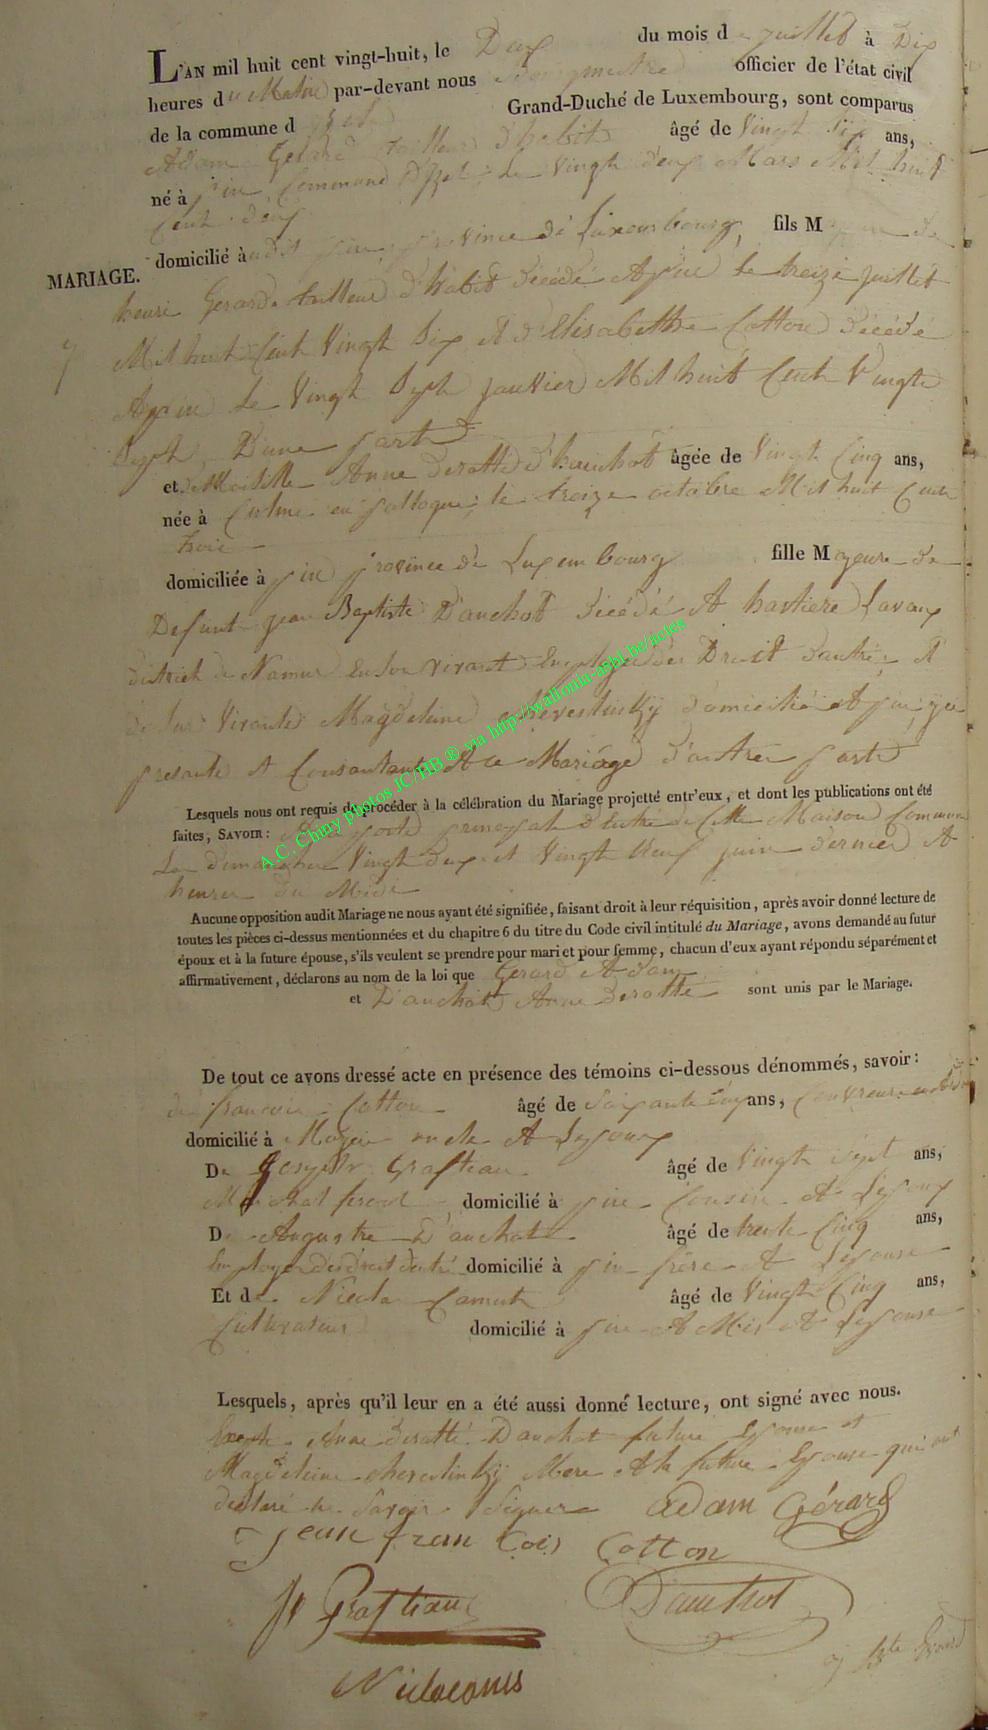 L'AN mil huit cent vingt-huit, le Deux du mois de juillet à Dix
heures du Matin par-devant nous Bourgmestre officier de l'état civil
de la commune d Grand-Duché de Luxembourg, sont comparus
Adam Gerard tailleur d'habit âgé de Vingt Six ans,
né à pin Commune d'Izel le Vingt deux Mars Mil huit
Cent deux
domicilié audit pin province de Luxembourg, fils Mayeure de
MARIAGE.
henri Gerard tailleur d'habit Décédé A pin le treize juillet
Mil huit Cent Vingt Six Et d'Elisabethe Cotton Décédé
A pin le Vingt Sept janvier Mil huit Cent Vingt
Sept, D'une part
et Anne Derotté d'hauchot âgée de Vingt Cinq ans,
née à Culme en pollogne le treize octobre Mil huit Cent
trois
domiciliée à pin province de Luxembourg fille Mayeure de
Defunt jean Baptiste D'auchot Décédé A hastiere Lavaux
district de Namur En Son vivant Employé des Droit d'antrée Et
de Sur Vivante Magdeleine domicilié A pin, ya
presante et Consantante A ce Mariage d'autre part
Lesquels nous ont requis de procéder à la célébration du Mariage projetté entr'eux, et dont les publications ont été
faites, SAVOIR: porte principale d'Entré de Cette Maison Commune
Les dimanches Vingt deux et Vingt Neuf juin dernier A
heures du Midi
Aucune opposition audit Mariage ne nous ayant été signifiée, faisant droit à leur réquisition, après avoir donné lecture de
toutes les pièces ci-dessus mentionnées et du chapitre 6 du titre du Code civil intitulé du Mariage, avons demandé au futur
époux et à la future épouse, s'ils veulent se prendre pour mari et pour femme, chacun d'eux ayant répondu séparément et
affirmativement, déclarons au nom de la loi que Gerard Adam
et D'auchot Anne Derotté sont unis par le Mariage.
De tout ce avons dressé acte en présence des témoins ci-dessous dénommés, savoir:
de francois Cotton âgé de Soixante ans, Couvreur
domicilié à oncle A Lepoux
De Joseph Graftiau âgé de Vingt Sept ans,
Maréchal ferant domicilié à pin Cousin A Lepoux
De Auguste D'auchot âgé de trente Cinq ans,
Employer des droit d'entré domicilié à pin frère A Lepouse
Et de Nicola âgé de Vingt Cinq ans,
Cultivateur domicilié à pin A Mis A Lepouse
Lesquels, après qu'il leur en a été aussi donné lecture, ont signé avec nous.
Excepté Anne Derotté Dauchot future Epouse et
Magdeleine Mere A la future Epouse qui ont
declaré ne Savoir Signer adam Gérard
Jean fran Cois Cotton
Jh Graftiau Dauchot
A.C. Chiny photos JC/HB ® via http://wallonia-asbl.be/actes